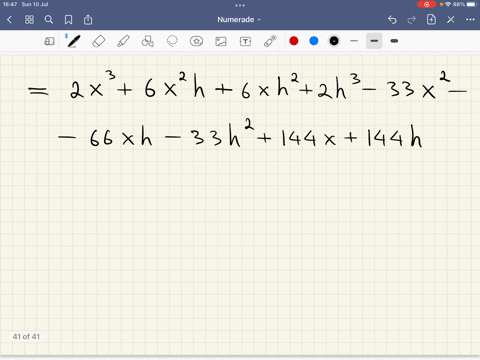 16:47 Sun 10 Jul
88%
Numerade
= 2x³ + 6x²h + 6xh² + 2h³ − 33x² −
− 66xh − 33h² + 144x + 144h
41 of 41